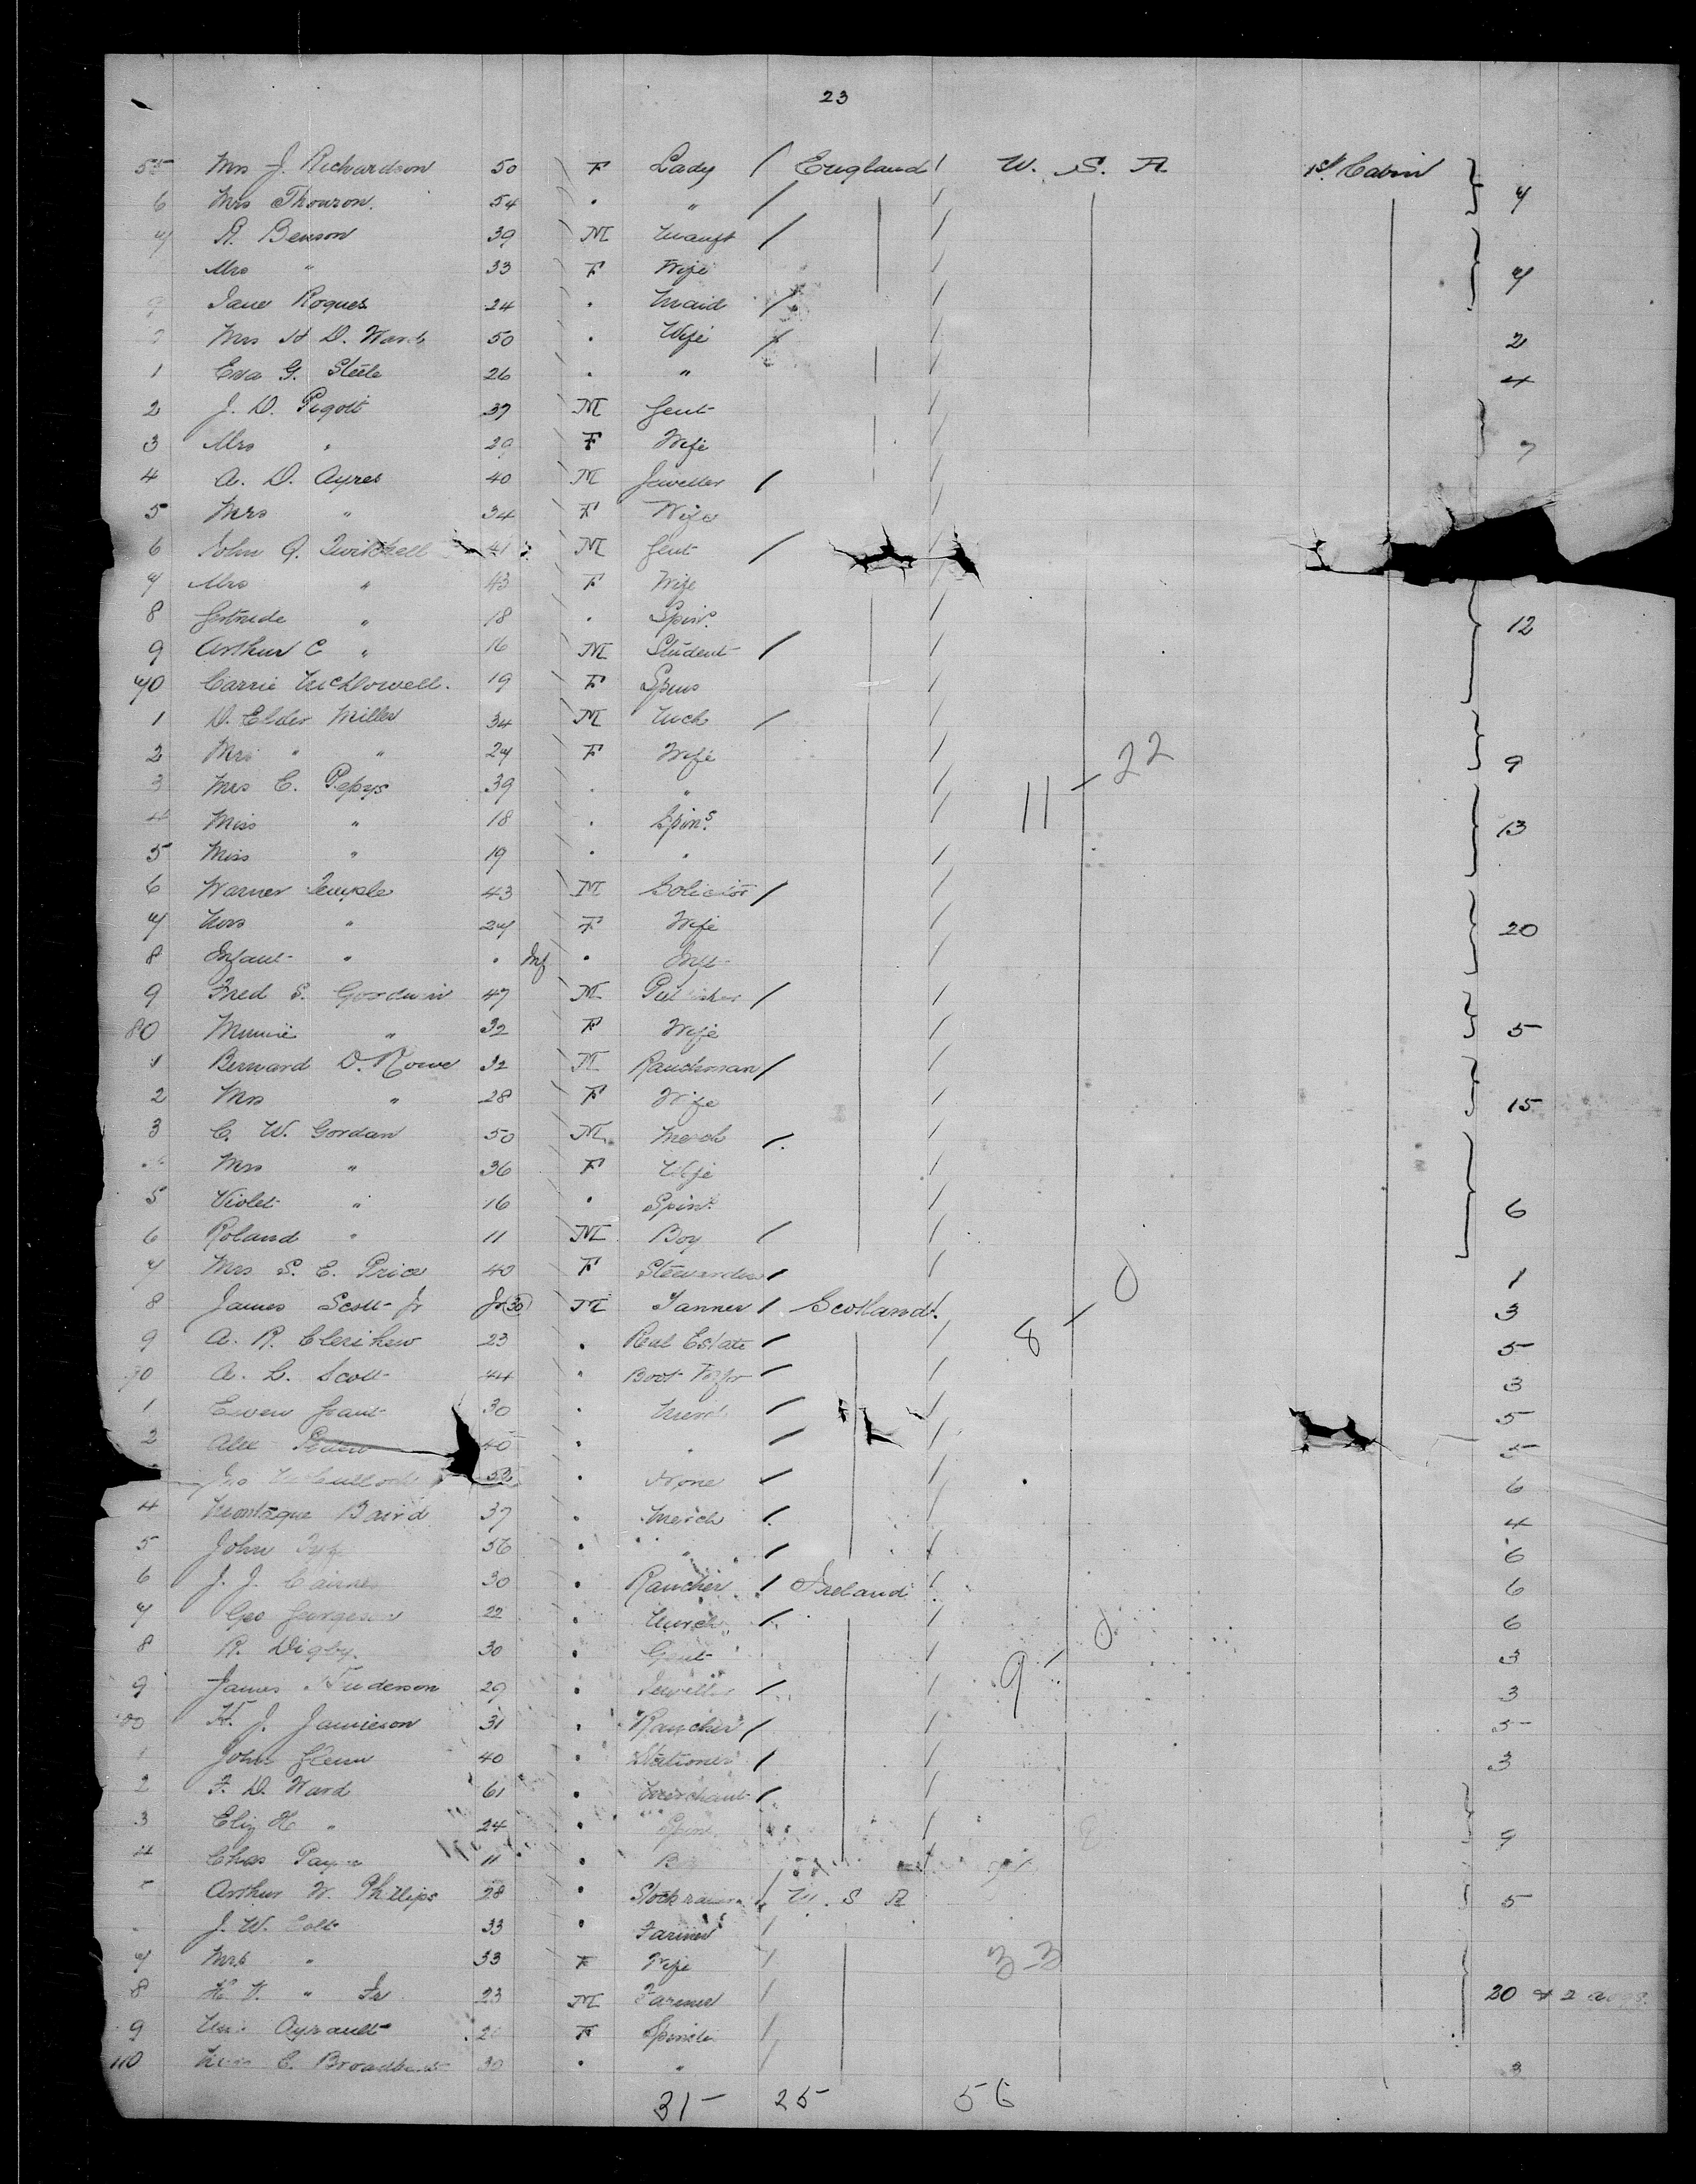 23
55 Mrs J. Richardson 50 F Lady / England / U. S. A 1st Cabin
6 Mrs Thouron. 54 " " / / 7
7 R. Benson 39 M Manfr / /
Mrs " 33 F Wife / 7
9 Jane Roques 24 " Maid / /
Mrs H D. Ward 50 " Wife / / 2
1 Eva G. Steele 26 " " / 4
2 J. D. Pigott 37 M Gent /
3 Mrs " 29 F Wife / 7
4 A. D. Ayres 40 M Jeweller / /
5 Mrs " 34 F Wife /
6 John Q. Twitchell 41 M Gent /
7 Mrs " 43 F Wife /
8 Gertrude " 18 " Spins. / 12
9 Arthur C " 16 M Student / /
70 Carrie 19 F Spins /
1 D. Elder Miller 34 M Mch / /
2 Mrs " " 27 F Wife / 22 9
3 Mrs C. Pepys 39 " " / 11 -
4 Miss " 18 " Spins. / 13
5 Miss " 19 " " /
6 Warner Temple 43 M Solicitor / /
7 Mrs " 27 F Wife / 20
8 Infant " " Inf " Inft /
9 Fred S. Goodwin 47 M Publisher / /
80 Minnie " 32 F Wife / 5
1 Bernard D. Rowe 32 M Ranchman / /
2 Mrs " 28 F Wife / 15
3 C. W. Gordan 50 M Merch / /
Mrs " 36 F Wife /
5 Violet " 16 " Spins. / 6
6 Roland " 11 M Boy / /
7 Mrs S. E. Price 40 F Stewardess / / 0 1
8 James Scott Jr Jr 30 M Tanner / Scotland / 3
9 A. R. Clerihew 23 " Real Estate / / 8 5
90 A. L. Scott 44 " Boot / / 3
1 Ewen Grant 30 " Merch / / 5
2 Alex 40 " " / / 5
Jno McCulloch 52 " None / / 6
4 Montague Baird 37 " Merch / / 4
5 John 56 " " / / 6
6 J. J. Cairnes 30 " Rancher / Ireland / 6
7 Geo Jurgeson 22 " Merch / / 0 6
8 R. Digby. 30 " Gent / 9 3
9 James Anderson 29 " Jeweller / / 3
100 H. J. Jamieson 31 " Rancher / / 5
1 John Glenn 40 " Stationer / / 3
2 F. D. Ward 61 " Merchant / /
3 Eliz H " 24 " Spins / 9
4 Chas Payne 11 " Boy /
5 Arthur W. Phillips 28 " Stock / U. S A 5
J. W. Colt 33 " Farmer /
7 Mrs " 33 F Wife / 33
8 " Jr 23 M Farmer / 20 + 2
9 Ayrault F Spinster /
110 Miss E. Broadbent 30 " " / 3
31 - 25 56